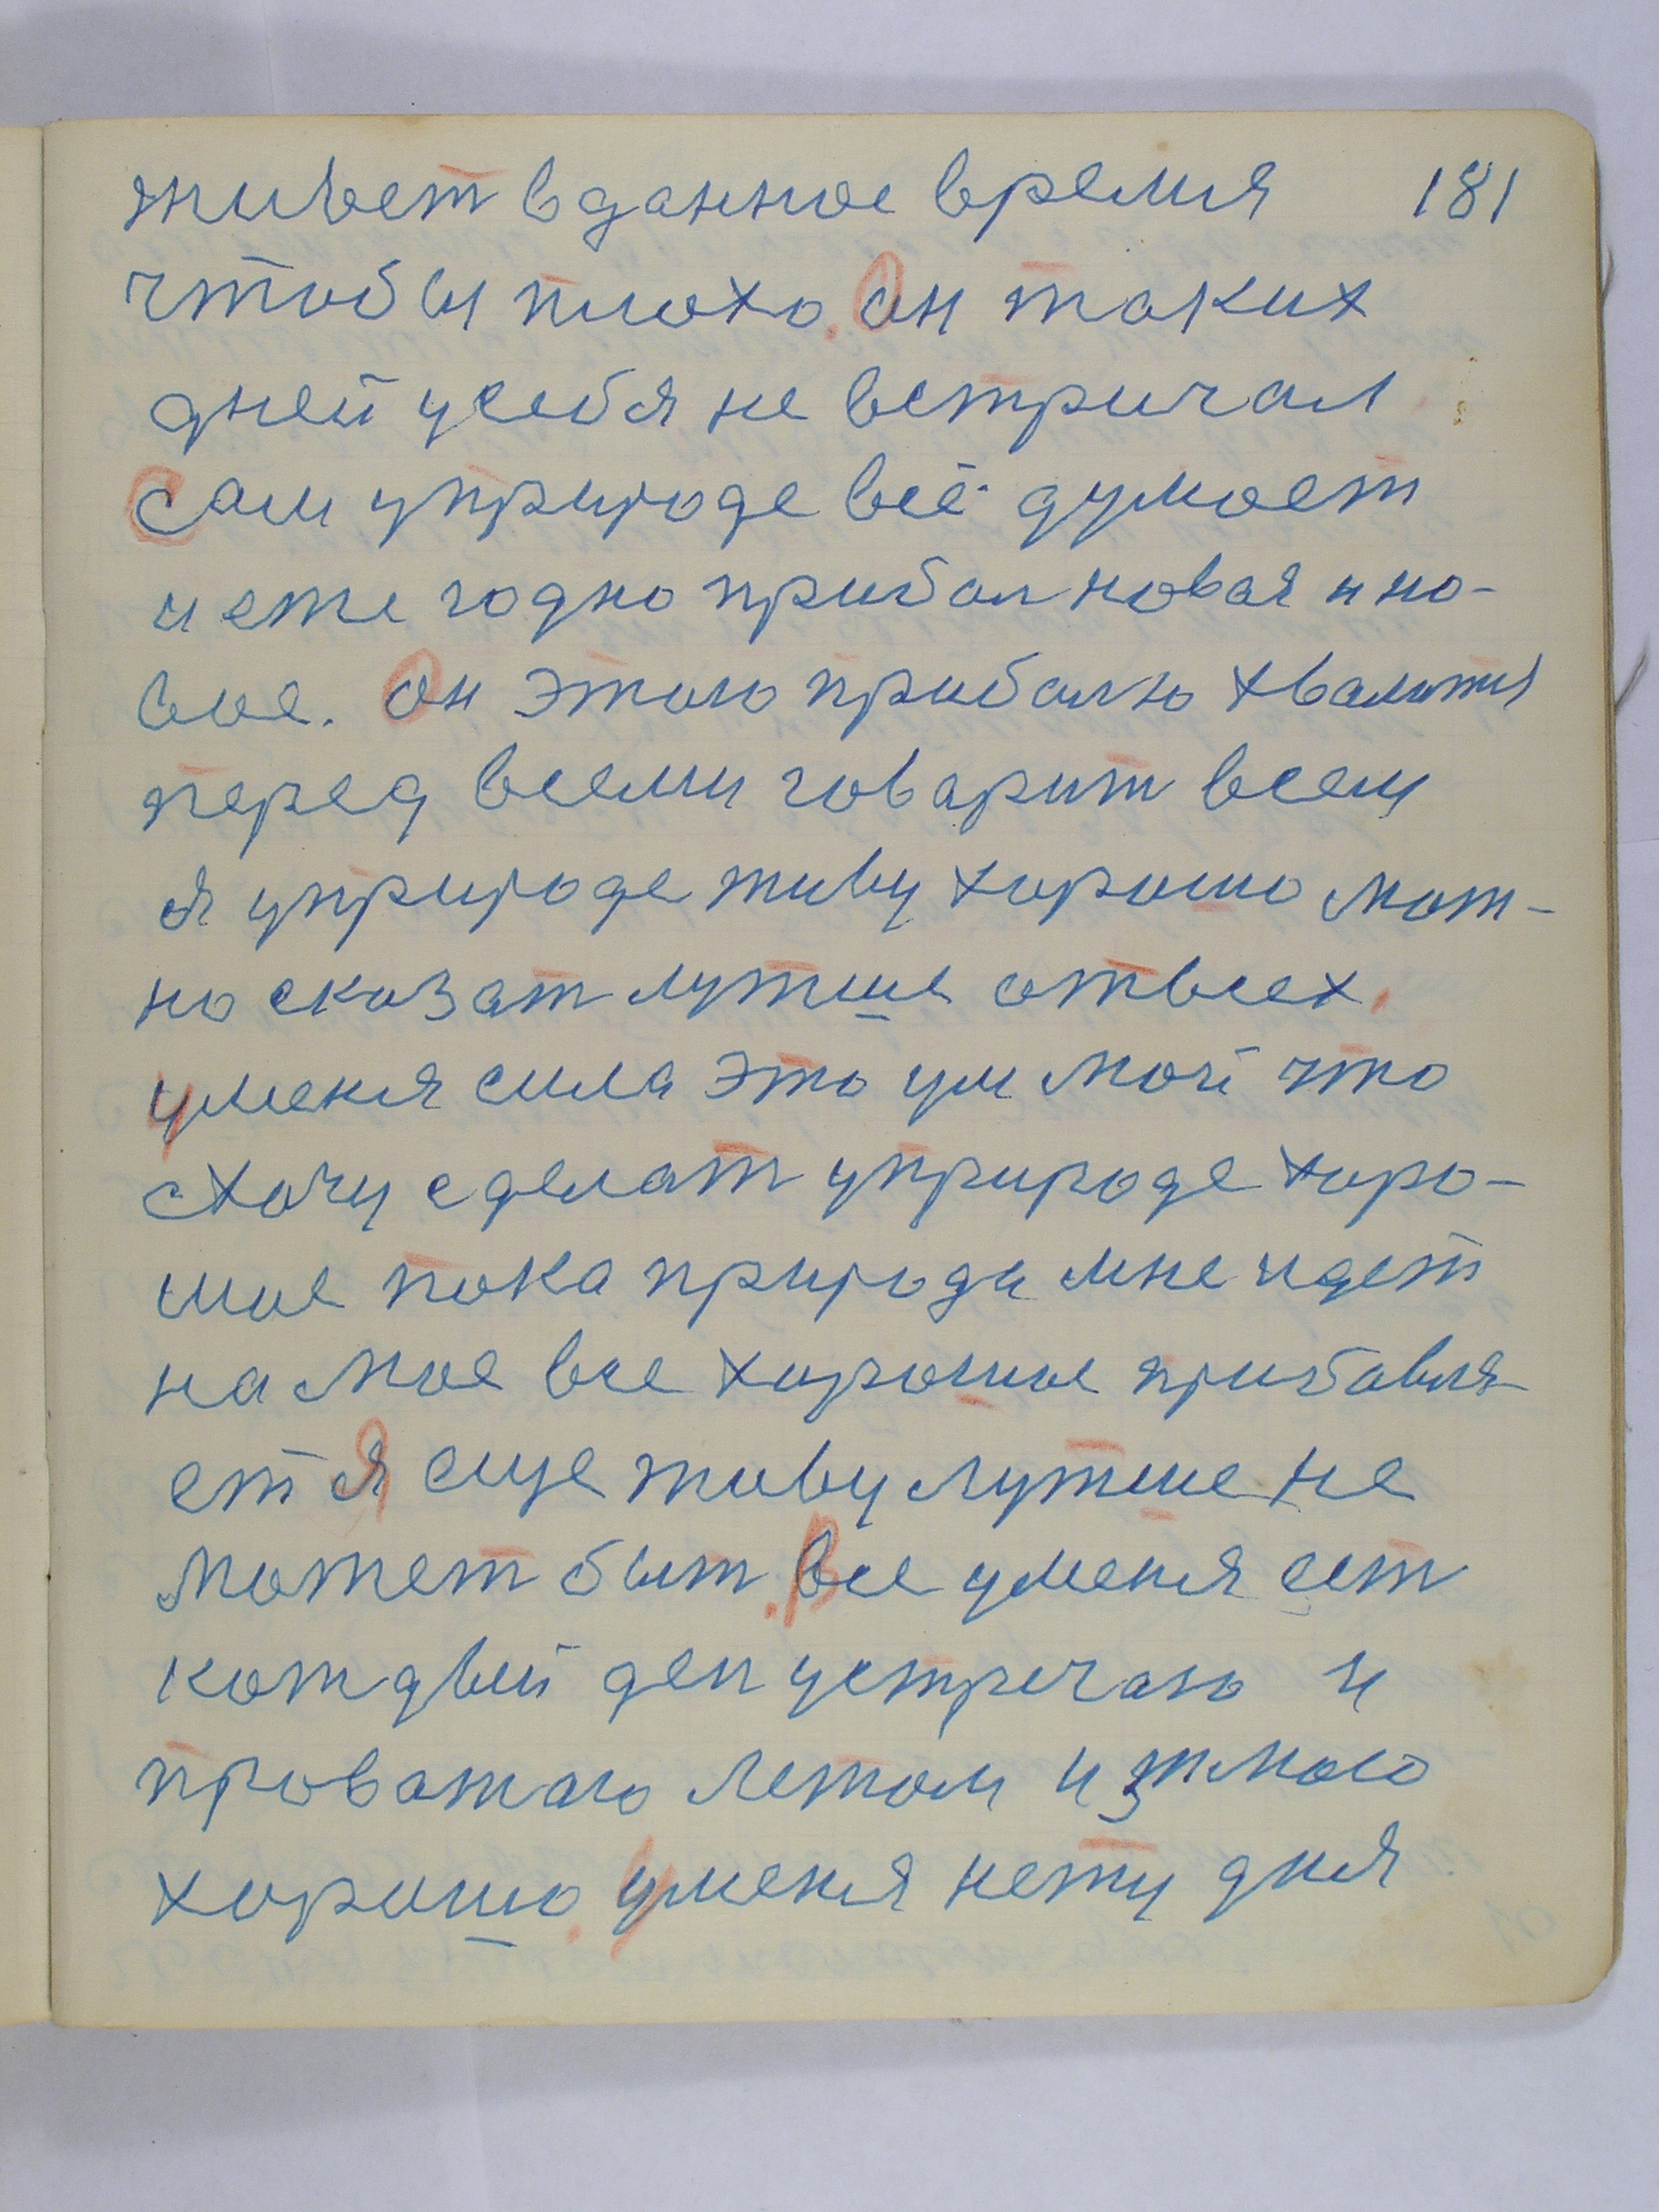 живет вданное время 181
чтобы плохо. Он таких
дней усебя не встричал
Сам уприроде всё думает
и еже годно прибал новая и но-
вое. Он этою прибалю хвалится
перед всеми говарит всем
я уприроде живу хорошо мож-
но сказат лутше отвсех.
уменя сила это ум мой что
схочу сделат уприроде хоро-
шое пока природа мне идет
на мое все хорошое прибавля-
ет Я еще живу лутше не
может быт. Все уменя ест
кождый ден устречаю и
проважаю летом и змою
хорошо. Уменя нету дня